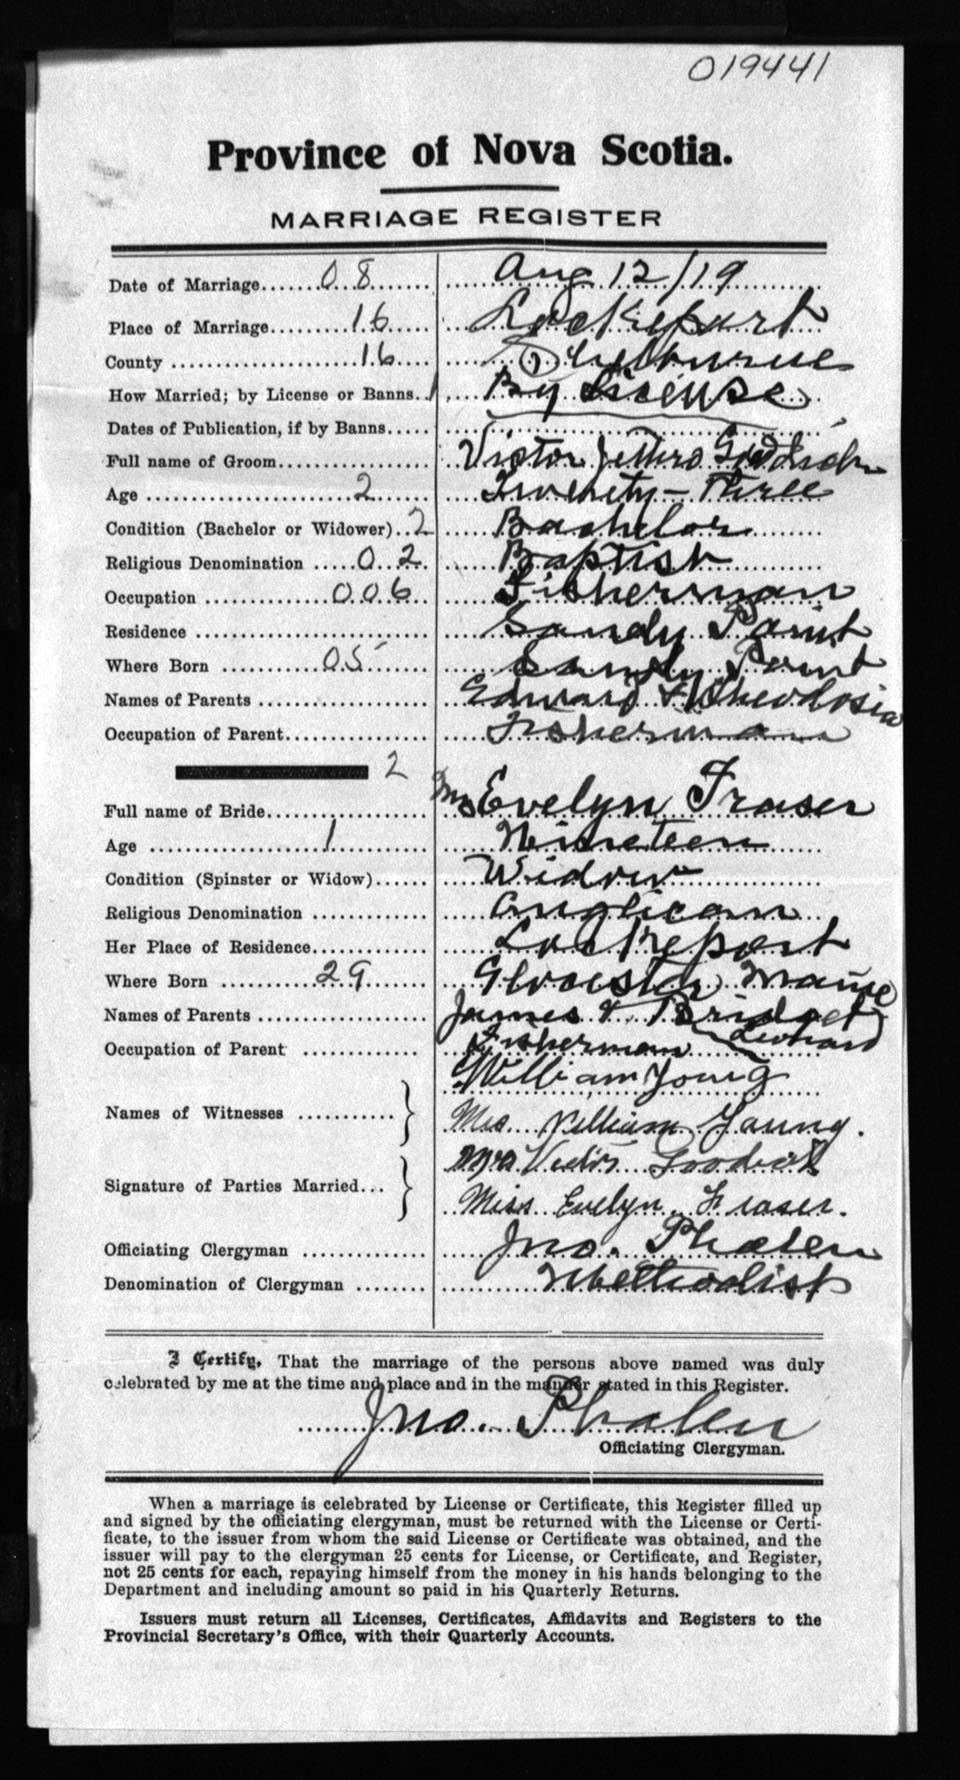 019441
Province of Nova Scotia.
MARRIAGE REGISTER
Date of Marriage.......0 8....... Aug 12/19
Place of Marriage.........16..... Lockeport
County ...................16.... Shelburne
How Married; by License or Banns..1 By License
Dates of Publication, if by Banns.....
Full name of Groom................. Victor Jethro
Age .....................2....... Twenety-Three
Condition (Bachelor or Widower)..2 Bachelor
Religious Denomination .....0..2. Baptist
Occupation .............006.. Fisherman
Residence ........................... Sandy Point
Where Born ..........05..... Sandy Point
Names of Parents .................... Edward & Theodosia
Occupation of Parent................. Fisherman
2
Full name of Bride................... Mrs Evelyn Fraser
Age ..................1.......... Nineteen
Condition (Spinster or Widow)...... Widow
Religious Denomination ............ Anglican
Her Place of Residence............. Lockeport
Where Born .........29....... Glocester Maine
Names of Parents .................. James & Bridget
Occupation of Parent ............ Fisherman Leonard
William Young
Names of Witnesses ...........} Mrs. William Young.
Mrs Victor
Signature of Parties Married...} Miss Evelyn Fraser.
Officiating Clergyman ............. Jno. Phalen
Denomination of Clergyman ........ Methodist
I Certify, That the marriage of the persons above named was duly
celebrated by me at the time and place and in the manner stated in this Register.
Jno. Phalen
Officiating Clergyman.
When a marriage is celebrated by License or Certificate, this Register filled up
and signed by the officiating clergyman, must be returned with the License or Certi-
ficate, to the issuer from whom the said License or Certificate was obtained, and the
issuer will pay to the clergyman 25 cents for License, or Certificate, and Register,
not 25 cents for each, repaying himself from the money in his hands belonging to the
Department and including amount so paid in his Quarterly Returns.
Issuers must return all Licenses, Certificates, Affidavits and Registers to the
Provincial Secretary's Office, with their Quarterly Accounts.